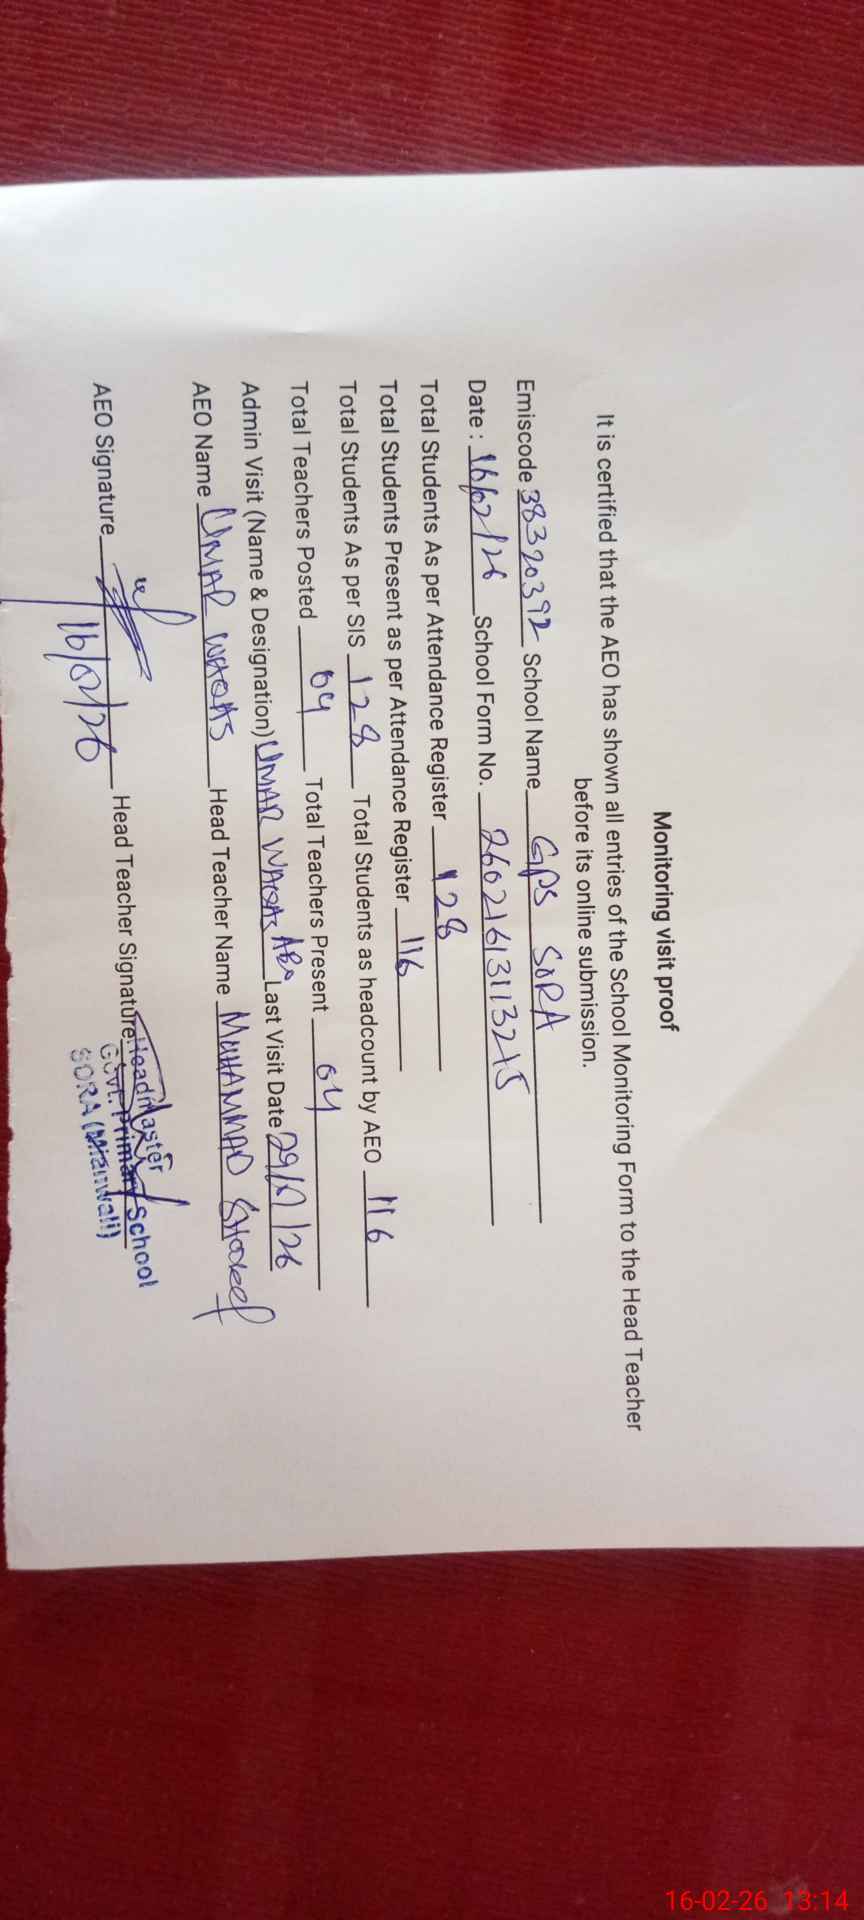 Monitoring visit proof
It is certified that the AEO has shown all entries of the School Monitoring Form to the Head Teacher
before its online submission.
Emiscode 38320392 School Name GPS SORA
Date : 16/02/26 School Form No. 26021613113215
Total Students As per Attendance Register 128
Total Students Present as per Attendance Register 116
Total Students As per SIS 128 Total Students as headcount by AEO 116
Total Teachers Posted 04 Total Teachers Present 04
Admin Visit (Name & Designation) UMAR WAQAS Last Visit Date 29/ /26
AEO Name UMAR WAQAS Head Teacher Name MUHAMMAD
AEO Signature Head Teacher Signature
16/02/26
Headmaster
Govt. Primary School
SORA (Mianwali)
16-02-26 13:14